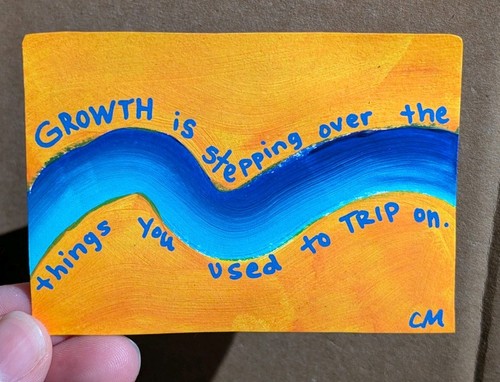 GROWTH is stepping over the
things you used to TRIP on.
CM